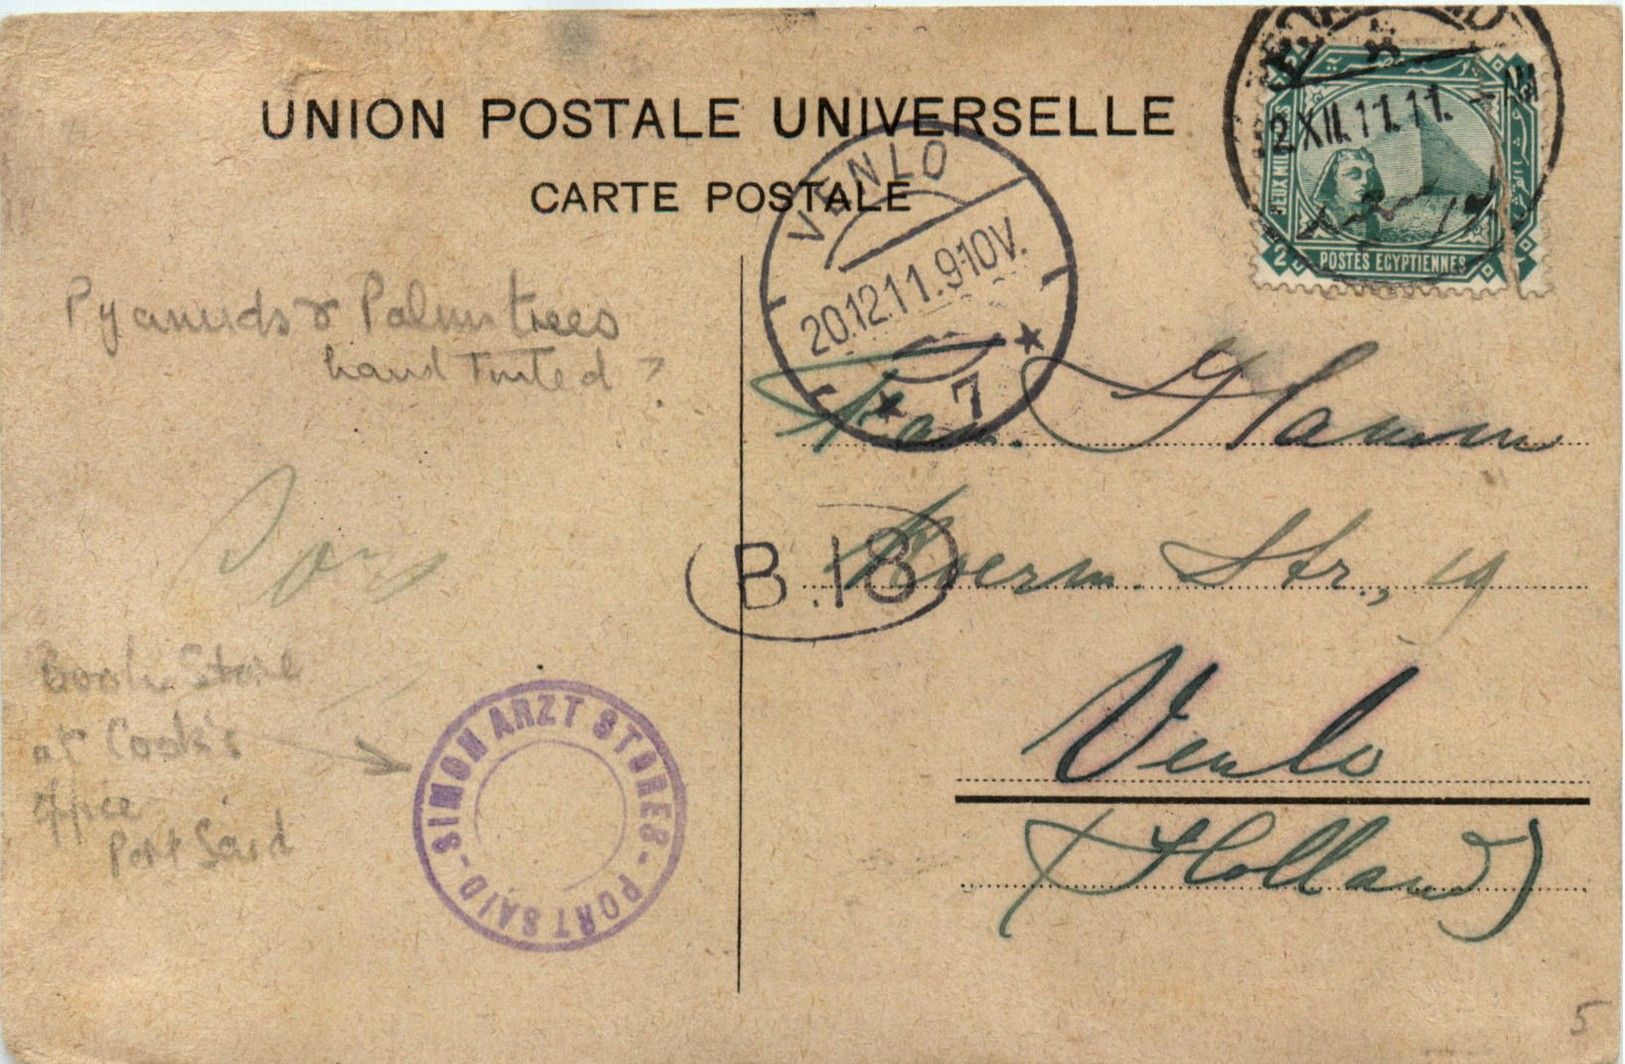 UNION POSTALE UNIVERSELLE
CARTE POSTALE
PORT SAID
2 XII.11.11.
DEUX MIL
2
POSTES EGYPTIENNES
VENLO
20.12.11.9-10V.
7
Pyramids & Palmtrees
hand Tinted ?
Hamm
B.18
Str., 19
Venlo
(Holland)
Book Store
at Cook's
office
Port Said
SIMON ARZT STORES - PORT SAID -
5